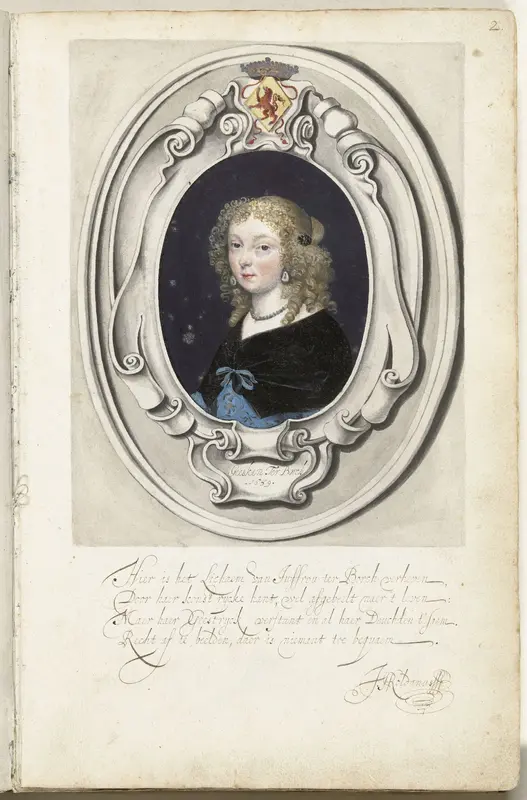 2
Geesken Ter Borch
1659.
Hier is het Lichaem van Juffrou ter Borch verheven
Door haar konst rijcke hant, wel afgebeelt naer t leven:
Maer haer Geestryck verstant en al haer Deuchden t'saem
Recht af te beelden, daer is niemant toe bequaem